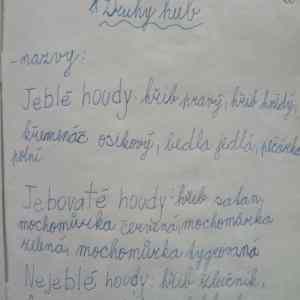 Druhy hub
- nazvy:
Jeblé houdy: hřib pravý, hřib hnědý,
křemenáč osikový, bedla jedlá, pěčárka
polní
Jebovaté houdy: hřib satan,
mochomůrka červená, mochomůrka
zelená, mochomůrka tygrovaná
Nejeblé houdy: hřib žlučník,